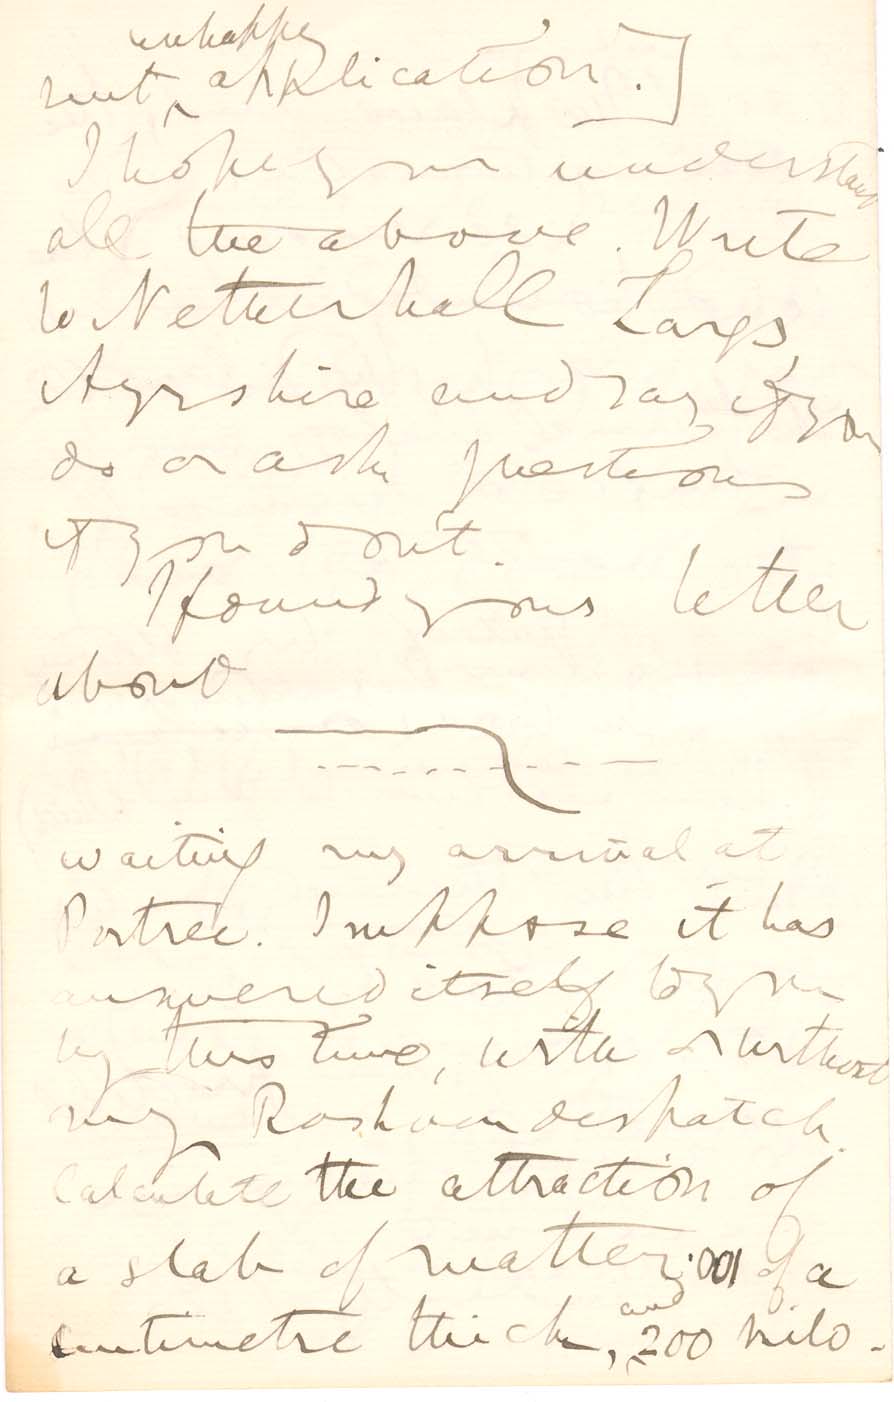 unhappy
nut ‸ application.]
I hope you understand
all the above. Write
to Netherhall Largs,
Ayrshire and say if you
do or ask questions
if you don't.
I found your letter
about
waiting my arrival at
Portree. I suppose it has
answered itself to you
by this time, with or without
my Roshven despatch.
Calculate the attraction of
a slab of matter, .001 of a
and
centimetre thick, ‸ 200 kilo-